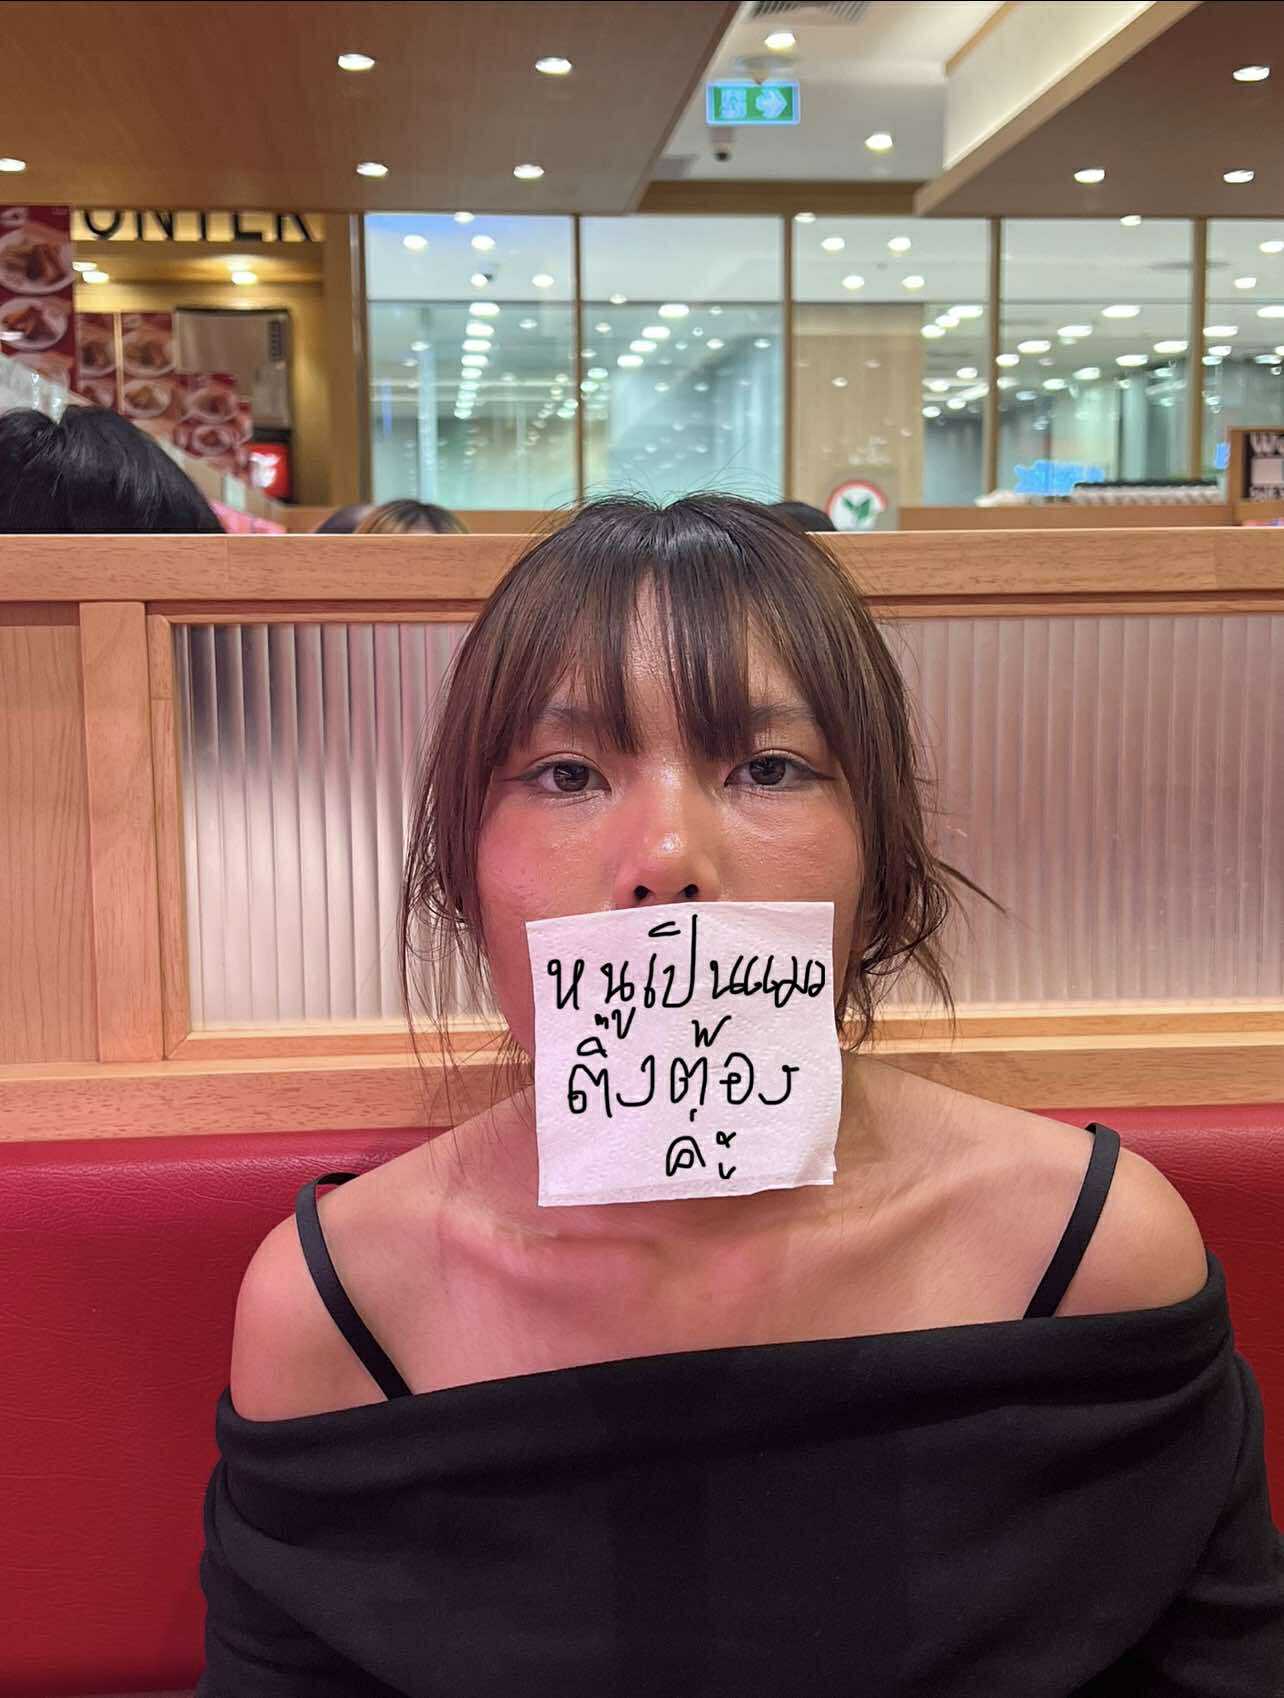 ONTER
หนูเป็นแมว
ติ๊งต๊อง
ค่ะ